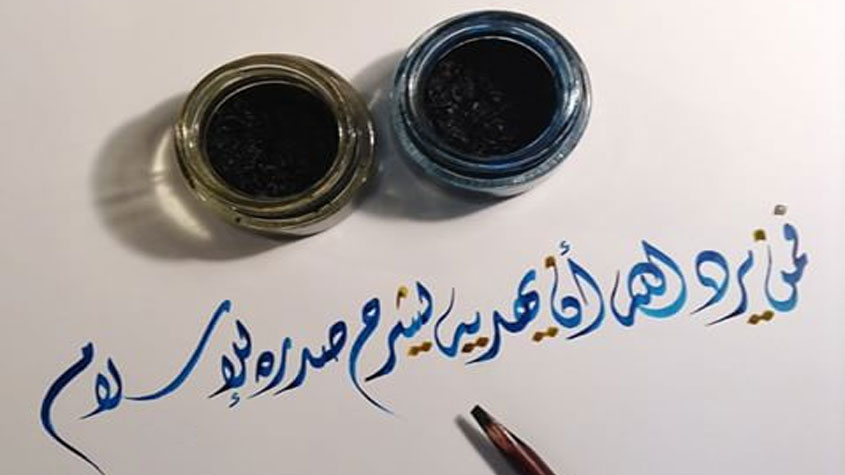 فمن يرد الله أن يهديه يشرح صدره للإسلام